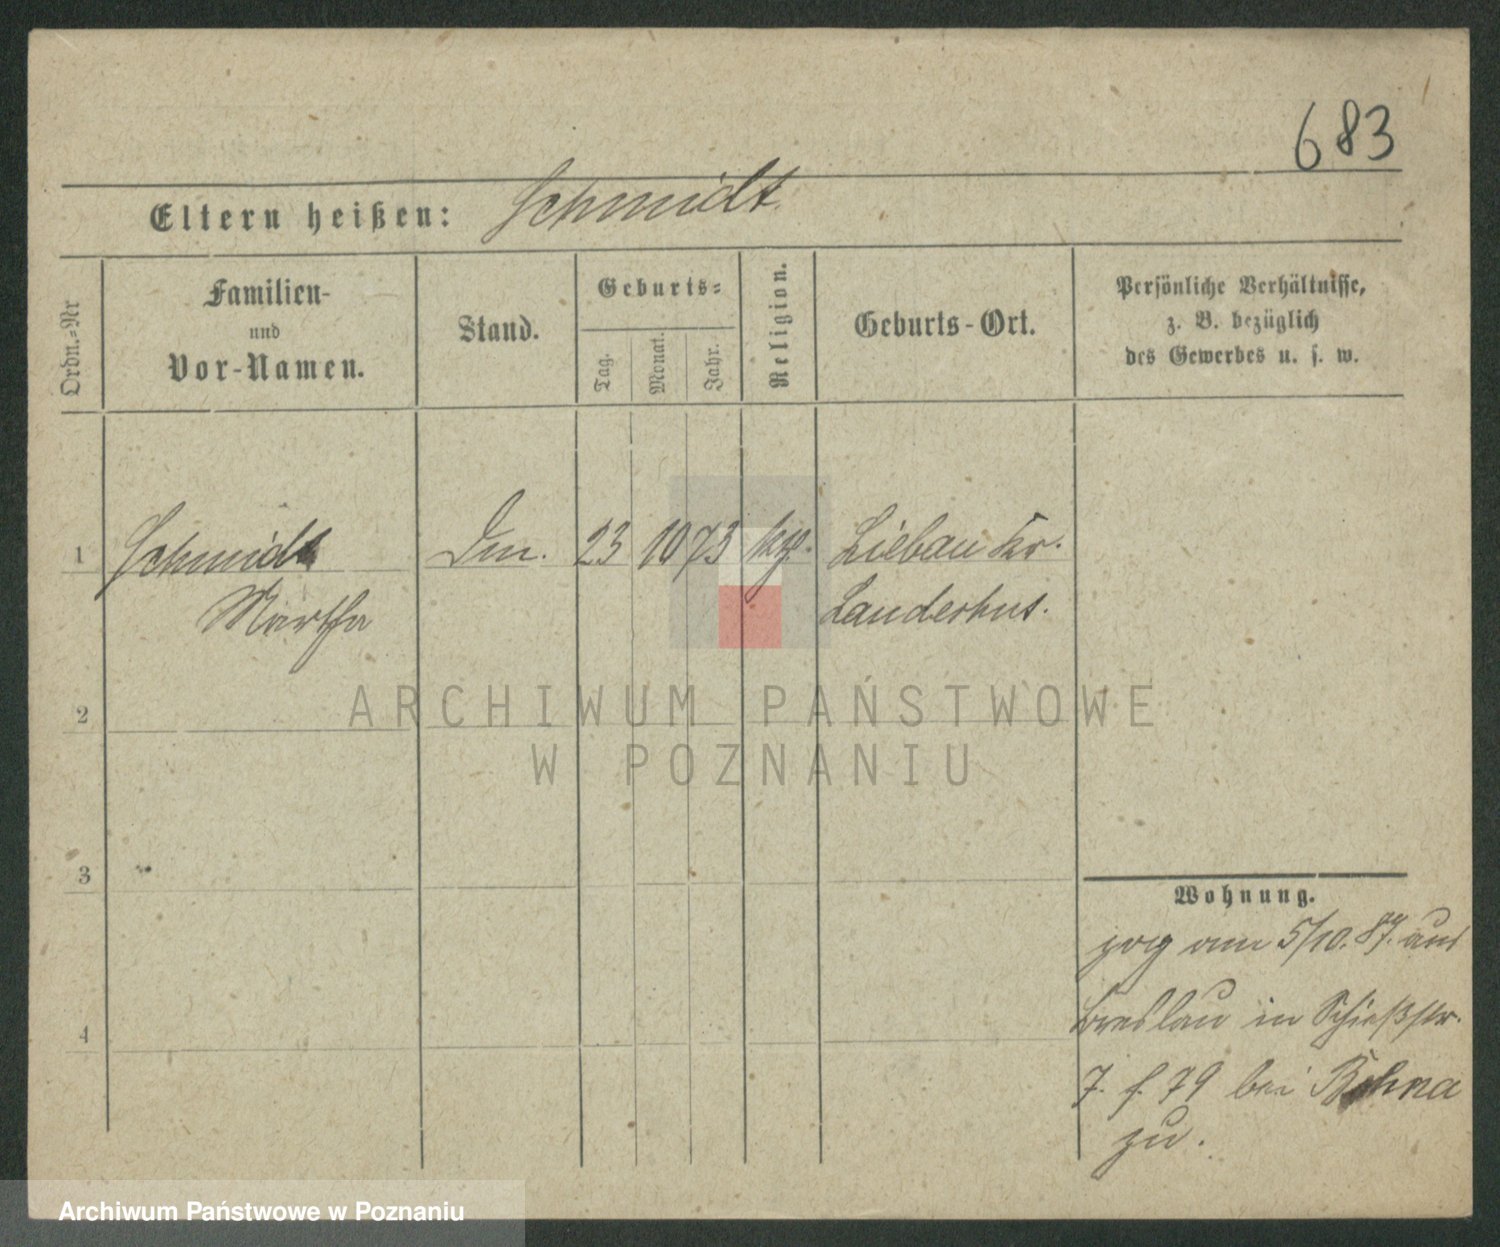 683
Eltern heißen: Schmidt
Ordn.-Nr
Familien-
und
Vor-Namen.
Stand.
Geburts-
Tag.
Monat.
Jahr.
Religion.
Geburts-Ort.
Persönliche Verhältnisse,
z. B. bezüglich
des Gewerbes u. s. w.
1 Schmidt 23 10 73 Liebau Kr.
Martha Landeshut.
2
ARCHIWUM PAŃSTWOWE
W POZNANIU
3
Wohnung.
zog am 5/10. 87. aus
Breslau in Schießstr.
4
7. f. 79 bei
zu.
Archiwum Państwowe w Poznaniu